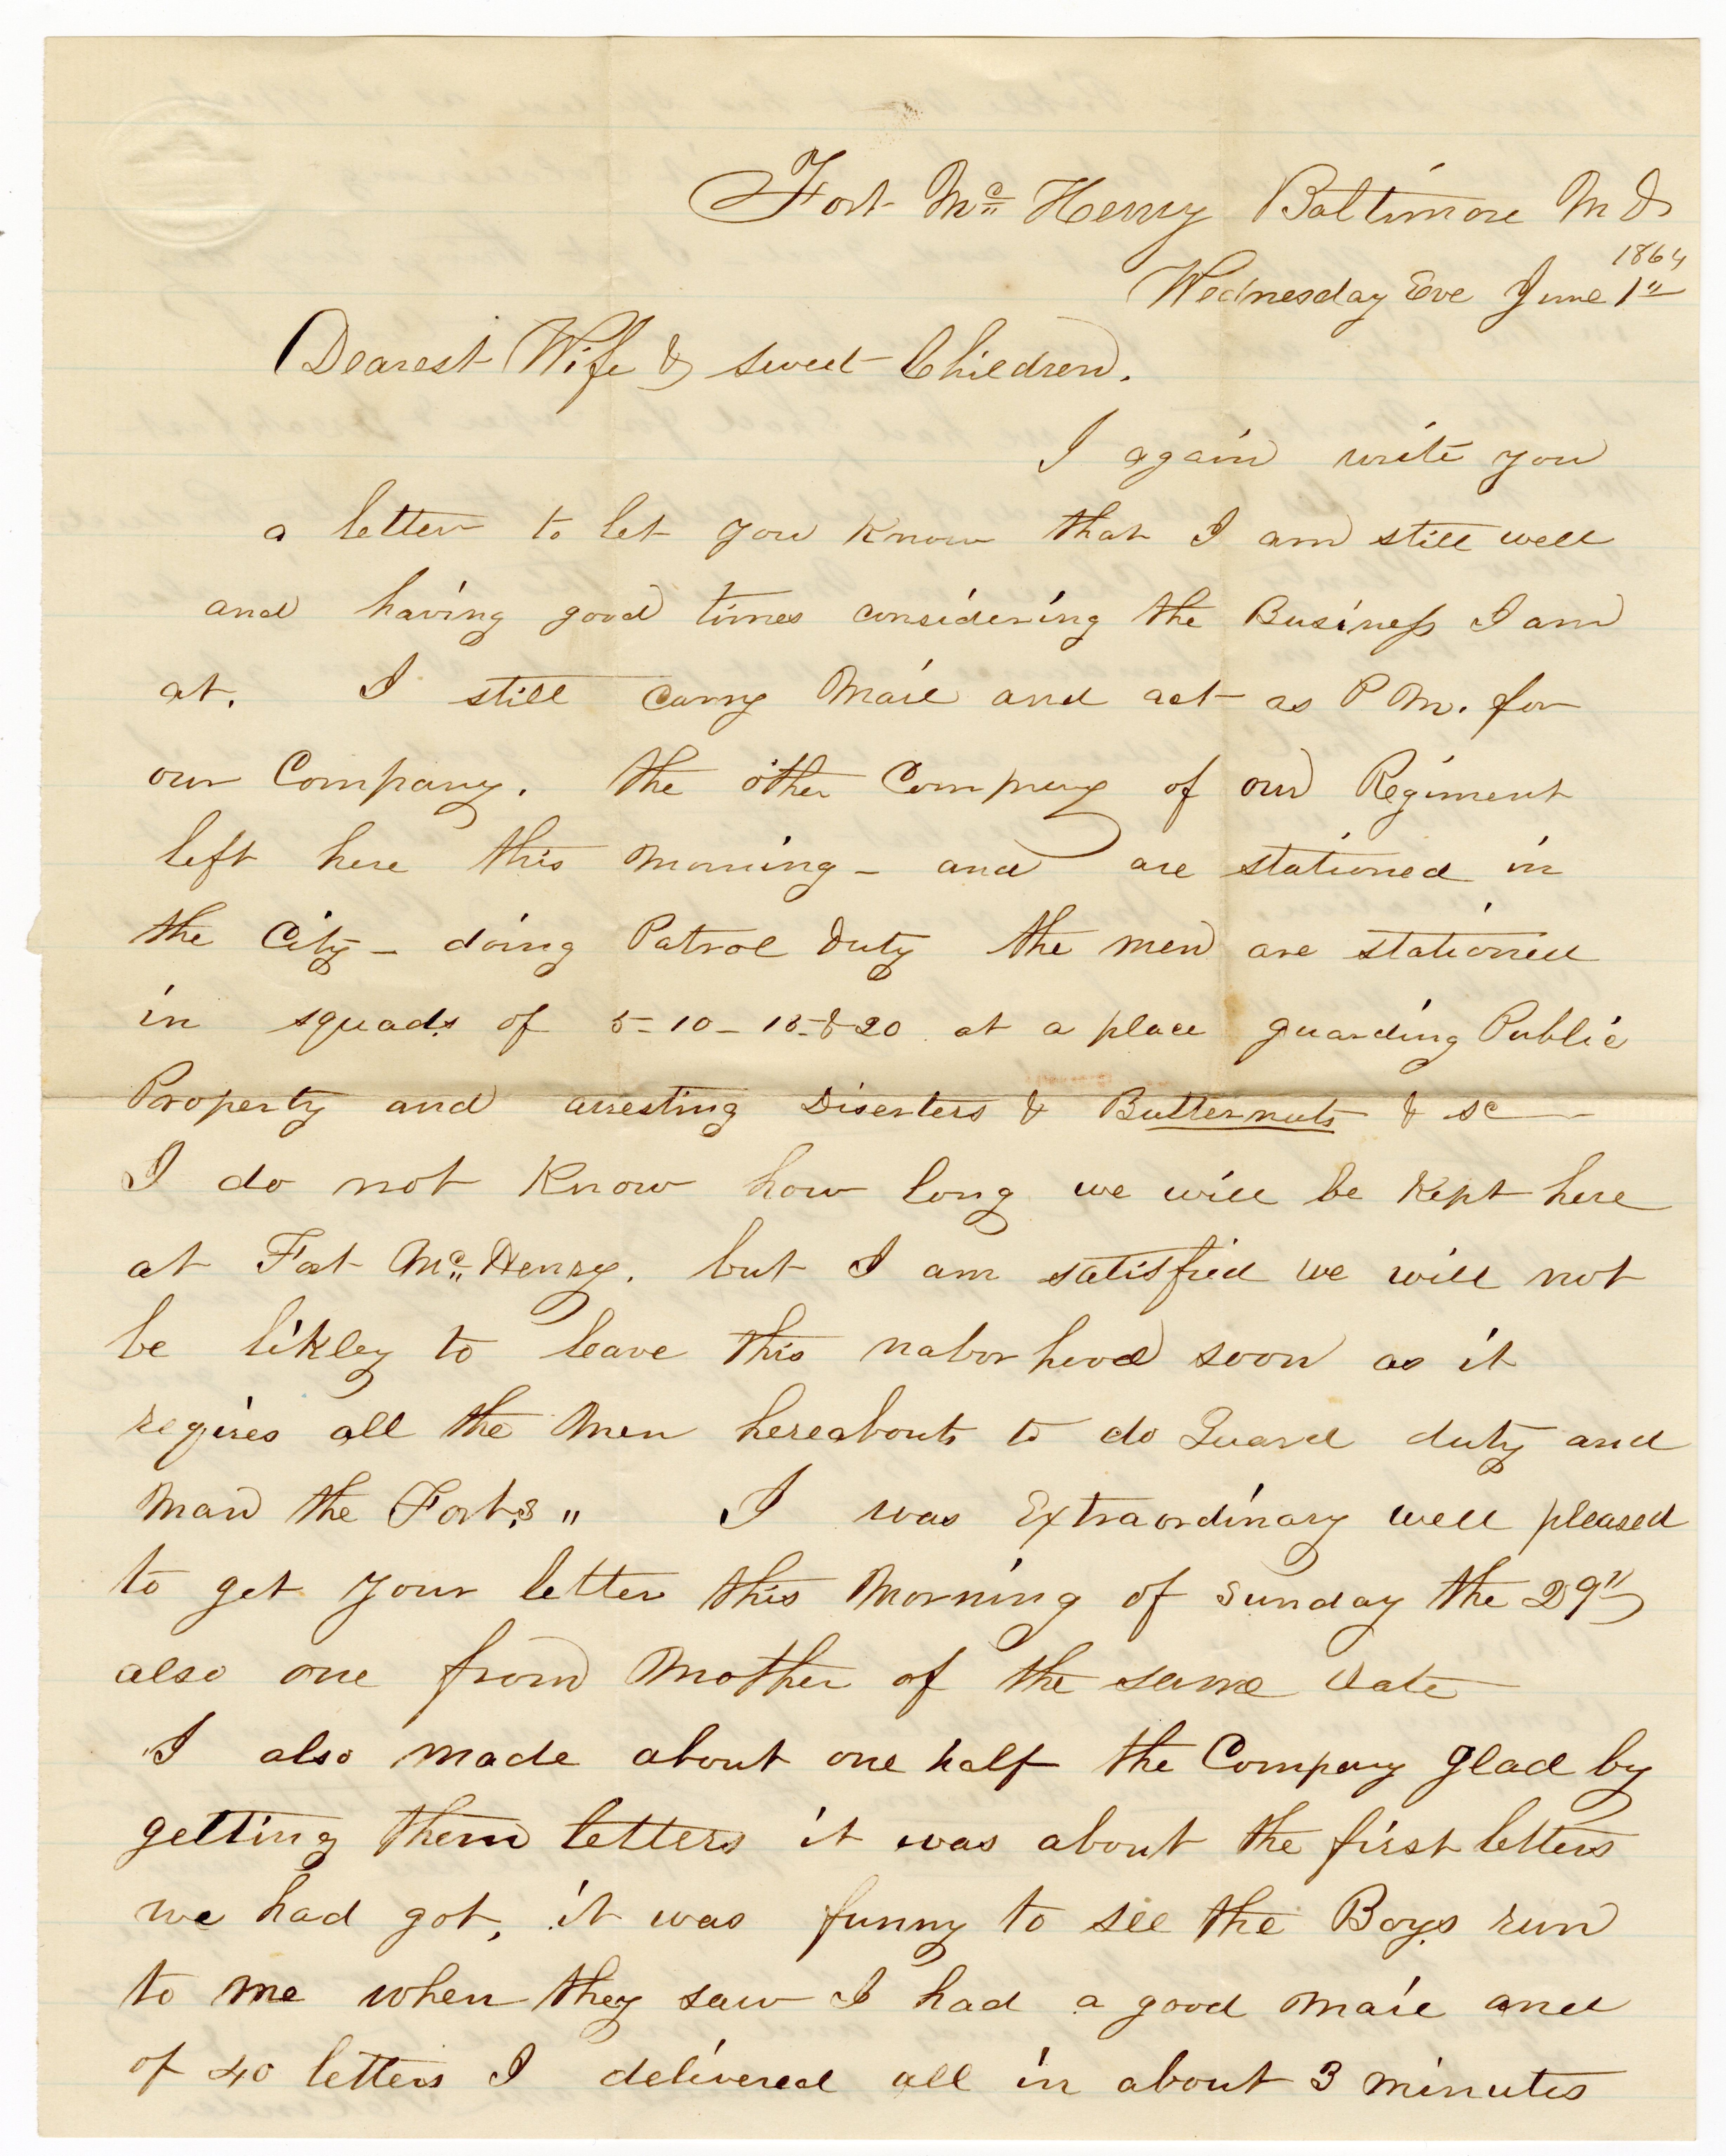 Fort Mc Henry Baltimore Md
1864
Wednesday Eve June 1"
Dearest Wife & sweet Children.
I again write you
a letter to let you know that I am still well
and having good times considering the Business I am
at. I still carry Mail and act as P M. for
our Company. the other Compney of our Regiment
left here this morning - and are stationed in
the City - doing Patrol duty the men are stationed
in squads of 5 - 10 - 15 - & 20 at a place guarding Public
Property and arresting Diserters & Butternuts & sc
I do not Know how long we will be Kept here
at Fort Mc Henry. but I am satisfied we will not
be likley to leave this naborhood soon as it
reqires all the Men hereabouts to do Guard duty and
Man the Forts " I was Extraordinary well pleased
to get your letter this Morning of Sunday the 29"
also one from Mother of the same date
I also made about one half the Company glad by
getting them letters it was about the first letters
we had got, it was funny to see the Boys run
to me when they saw I had a good Mail and
of 40 letters I delivered all in about 3 minutes